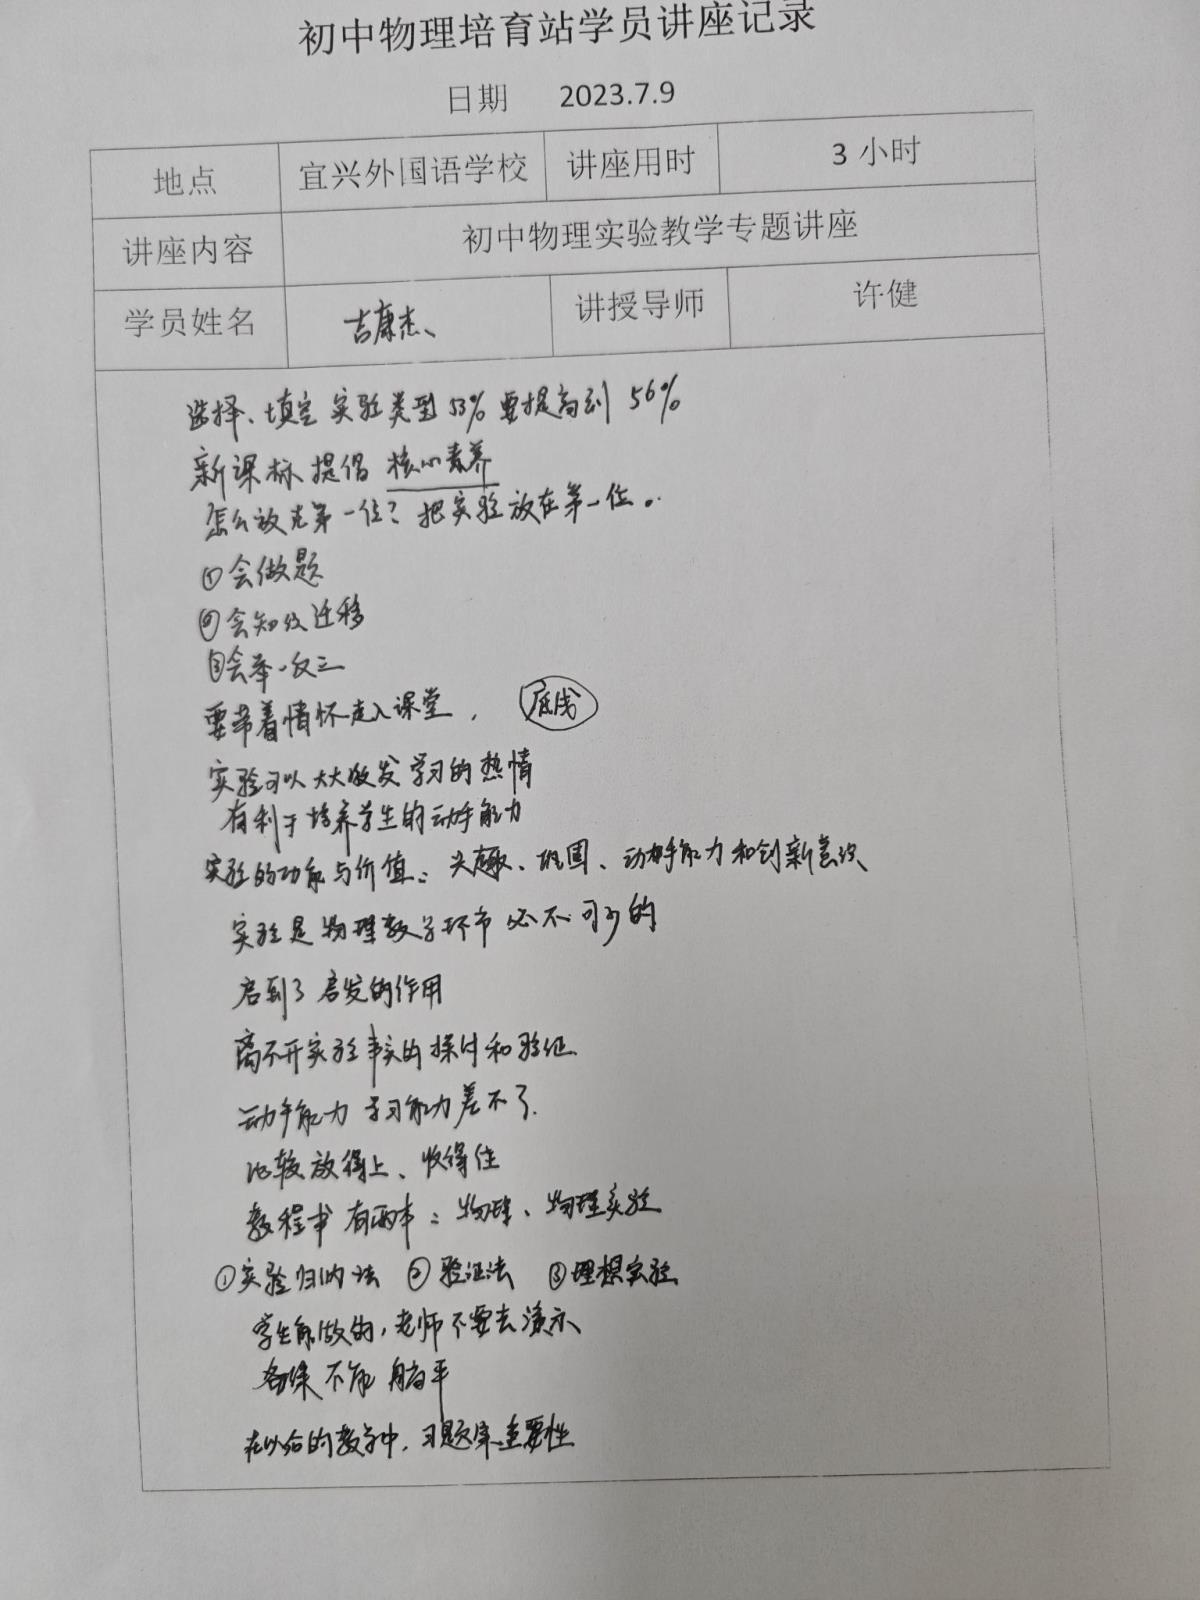 初中物理培育站学员讲座记录
日期 2023.7.9
地点 宜兴外国语学校 讲座用时 3 小时
讲座内容 初中物理实验教学专题讲座
学员姓名 吉康杰、 讲授导师 许健
选择、填空 实验类型 53% 要提高到 56%
新课标提倡 核心素养
怎么放在第一位？把实验放在第一位。
①会做题
②会知识迁移
③会举一反三
要带着情怀走入课堂， 底线
实验可以大大激发学习的热情
有利于培养学生的动手能力
实验的功能与价值： 兴趣、巩固、动手能力和创新意识
实验是物理教学环节必不可少的
启到了启发的作用
离不开实验事实的探讨和验证
动手能力 学习能力差不了.
比较放得上、收得住
教程书有两本：物理、物理实验
①实验归纳法 ②验证法 ③理想实验
学生能做的，老师不要去演示
备课不能 
在以后的教学中，习题 重要性